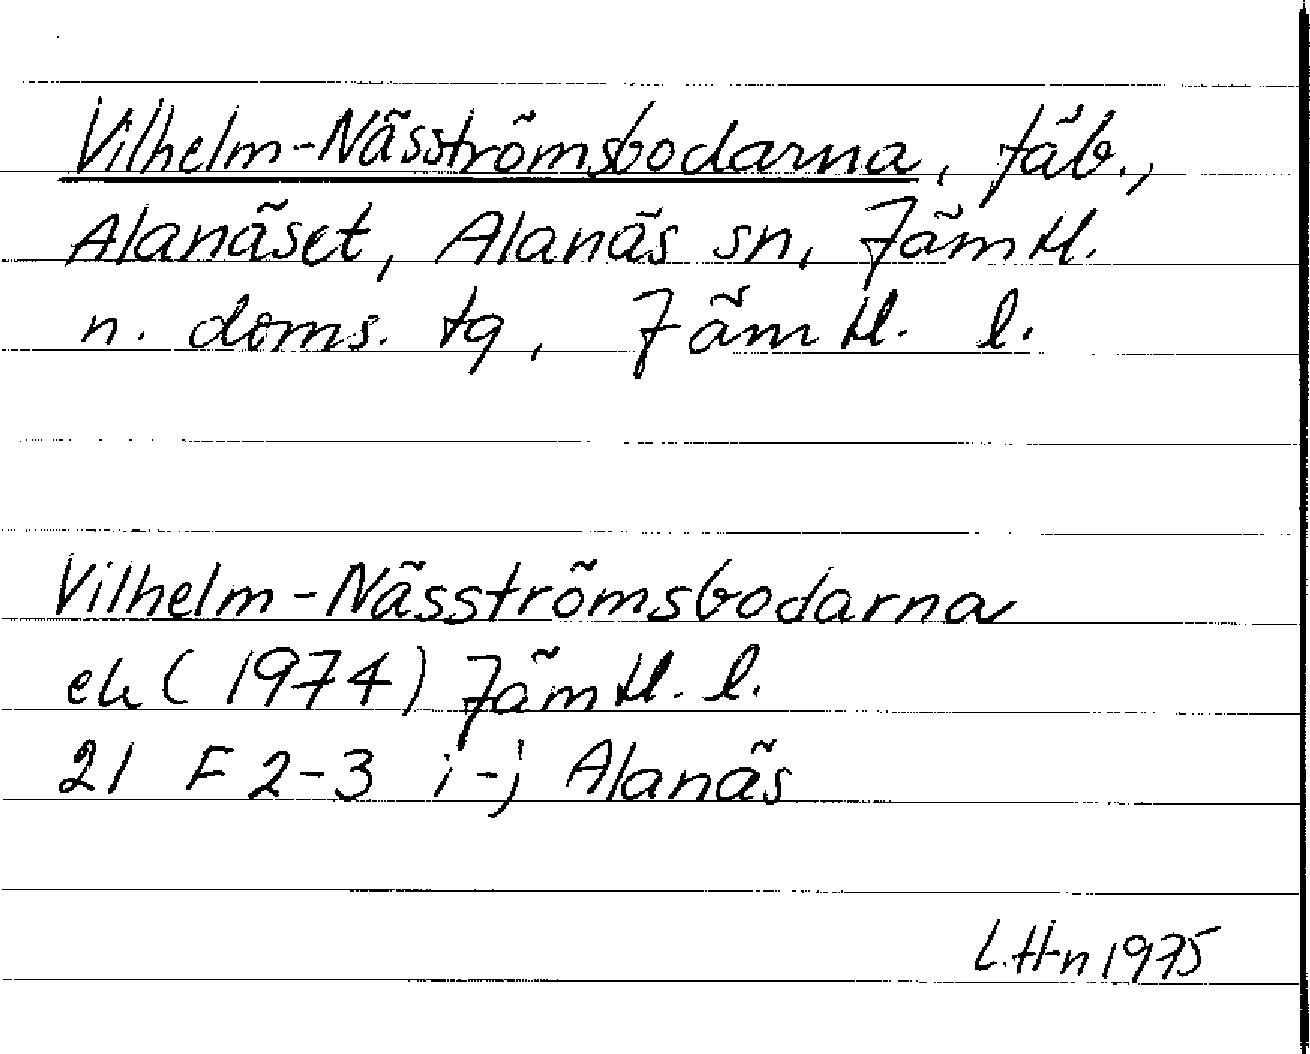 Vilhelm-Näsströmsbodarna, fäb.,
Alanäset, Alanäs sn, Jämtl.
n. doms. tg, Jämtl. l.
Vilhelm-Näsströmsbodarna
ek (1974) Jämtl. l.
21 F 2-3 i-j Alanäs
L.H-n 1975